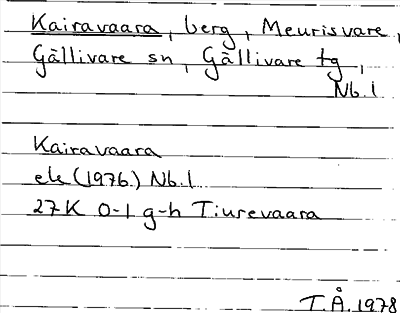 Kairavaara, berg, Meurisvare,
Gällivare sn, Gällivare tg,
Nb.l
Kairavaara
ek (1976.) Nb.l
27K 0-1 g-h Tiurevaara
T.Å.1978